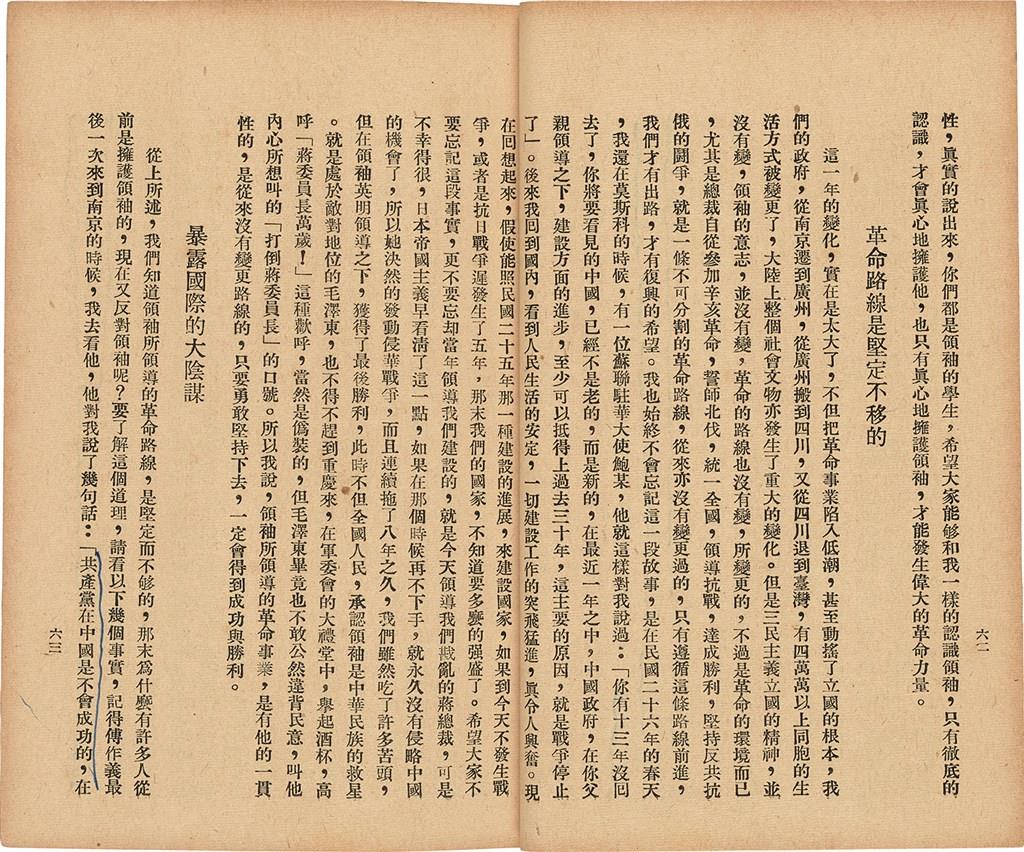 性，眞實的說出來，你們都是領袖的學生，希望大家能够和我一樣的認識領袖，只有徹底的
認識，才會眞心地擁護他，也只有眞心地擁護領袖，才能發生偉大的革命力量。
革命路線是堅定不移的
這一年的變化，實在是太大了，不但把革命事業陷入低潮，甚至動搖了立國的根本，我
們的政府，從南京遷到廣州，從廣州搬到四川，又從四川退到臺灣，有四萬萬以上同胞的生
活方式被變更了，大陸上整個社會文物亦發生了重大的變化。但是三民主義立國的精神，並
沒有變，領袖的意志，並沒有變，革命的路線也沒有變，所變更的，不過是革命的環境而已
，尤其是總裁自從參加辛亥革命，誓師北伐，統一全國，領導抗戰，達成勝利，堅持反共抗
俄的鬪爭，就是一條不可分割的革命路線，從來亦沒有變更過的，只有遵循這條路線前進，
我們才有出路，才有復興的希望。我也始終不會忘記這一段故事，是在民國二十六年的春天
，我還在莫斯科的時候，有一位蘇聯駐華大使鮑某，他就這樣對我說過：「你有十三年沒回
去了，你將要看見的中國，已經不是老的，而是新的，在最近一年之中，中國政府，在你父
親領導之下，建設方面的進步，至少可以抵得上過去三十年，這主要的原因，就是戰爭停止
了」。後來我回到國內，看到人民生活的安定，一切建設工作的突飛猛進，眞令人興奮。現
在回想起來，假使能照民國二十五年那一種建設的進展，來建設國家，如果到今天不發生戰
爭，或者是抗日戰爭遲發生了五年，那末我們的國家，不知道要多麽的强盛了。希望大家不
要忘記這段事實，更不要忘却當年領導我們建設的，就是今天領導我們戡亂的蔣總裁，可是
不幸得很，日本帝國主義早看淸了這一點，如果在那個時候再不下手，就永久沒有侵略中國
的機會了，所以她決然的發動侵華戰爭，而且連續拖了八年之久，我們雖然吃了許多苦頭，
但在領袖英明領導之下，獲得了最後勝利，此時不但全國人民，承認領袖是中華民族的救星
。就是處於敵對地位的毛澤東，也不得不趕到重慶來，在軍委會的大禮堂中，舉起酒杯，高
呼「蔣委員長萬歲！」這種歡呼，當然是僞裝的，但毛澤東畢竟也不敢公然違背民意，叫他
內心所想叫的「打倒蔣委員長」的口號。所以我說，領袖所領導的革命事業，是有他的一貫
性的，是從來沒有變更路線的，只要勇敢堅持下去，一定會得到成功與勝利。
暴露國際的大陰謀
從上所述，我們知道領袖所領導的革命路線，是堅定而不够的，那末爲什麼有許多人從
前是擁護領袖的，現在又反對領袖呢？要了解這個道理，請看以下幾個事實，記得傅作義最
後一次來到南京的時候，我去看他，他對我說了幾句話：「共產黨在中國是不會成功的，在
六二
六三